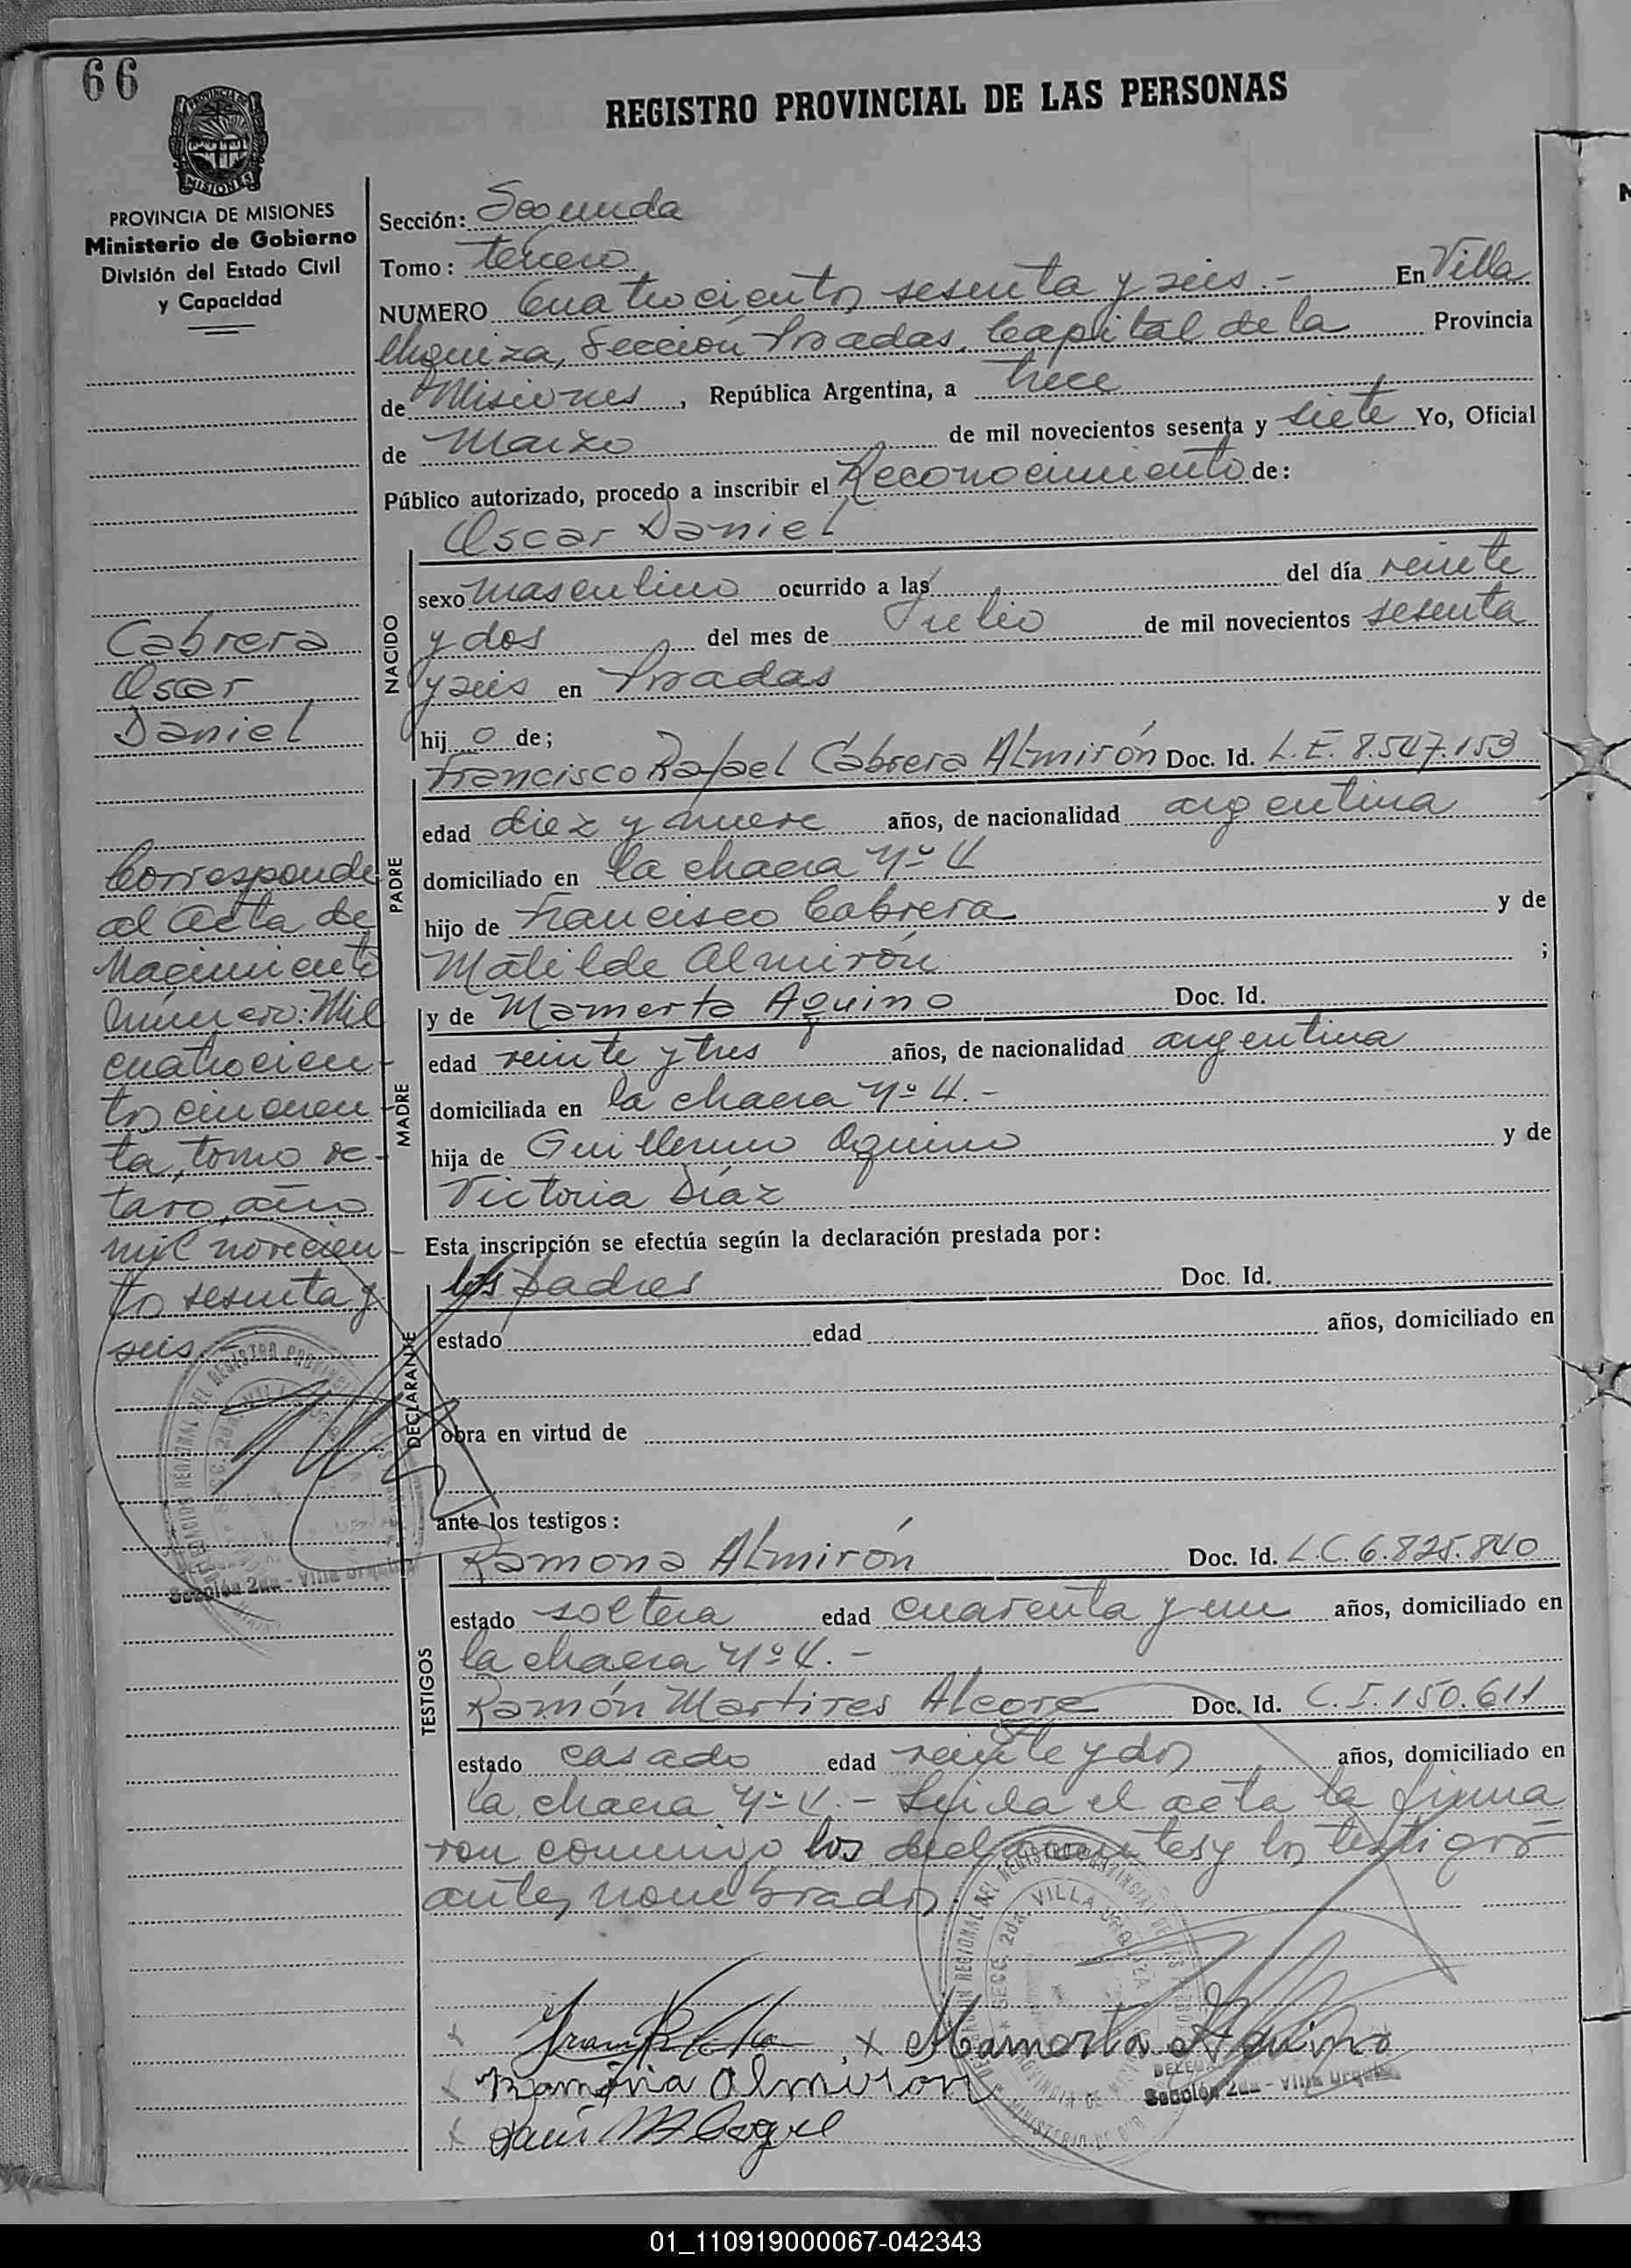 66
REGISTRO PROVINCIAL DE LAS PERSONAS
PROVINCIA DE MISIONES
Ministerio de Gobierno
División del Estado Civil
y Capacidad
Sección: Segunda
Tomo: tercero
NUMERO Cuatrocientos sesenta y seis.- En Villa
Urquiza, Sección Posadas, Capital de la Provincia
de Misiones, República Argentina, a trece
de Marzo de mil novecientos sesenta y siete Yo, Oficial
Público autorizado, procedo a inscribir el Reconocimiento de:
Oscar Daniel
NACIDO
sexo masculino ocurrido a las del día veinte
y dos del mes de Julio de mil novecientos sesenta
y seis en Posadas
hijo de;
Francisco Rafael Cabrera Almirón Doc. Id. L.E. 8.547.153
PADRE
edad diez y nueve años, de nacionalidad argentina
domiciliado en la chacra Nº 4
hijo de Francisco Cabrera y de
Matilde Almirón ;
y de Mamerta Aquino Doc. Id.
MADRE
edad veinte y tres años, de nacionalidad argentina
domiciliada en la chacra Nº 4.-
hija de Guillermo Aquino y de
Victoria Díaz
Esta inscripción se efectúa según la declaración prestada por:
los padres Doc. Id.
DECLARANTE
estado edad años, domiciliado en
obra en virtud de
ante los testigos:
Ramona Almirón Doc. Id. L.C. 6.825.840
TESTIGOS
estado soltera edad cuarenta y un años, domiciliado en
la chacra Nº 4.-
Ramón Martires Alegre Doc. Id. C.I. 150.611
estado casado edad veinte y dos años, domiciliado en
la chacra Nº 4.- Leída el acta la firma
ron conmigo los declarantes y los testigos
antes nombrados.
Cabrera
Oscar
Daniel
Corresponde
al acta de
Nacimiento
número: Mil
cuatrocien-
tos cincuen
ta, tomo oc-
tavo, año
mil novecien-
tos sesenta y
seis.-
Sección 2da - Villa Urquiza
x Mamerta Aquino
Ramona Almiron
SECC. 2da. VILLA URQUIZA
Sección 2da - Villa Urquiza
01_110919000067-042343